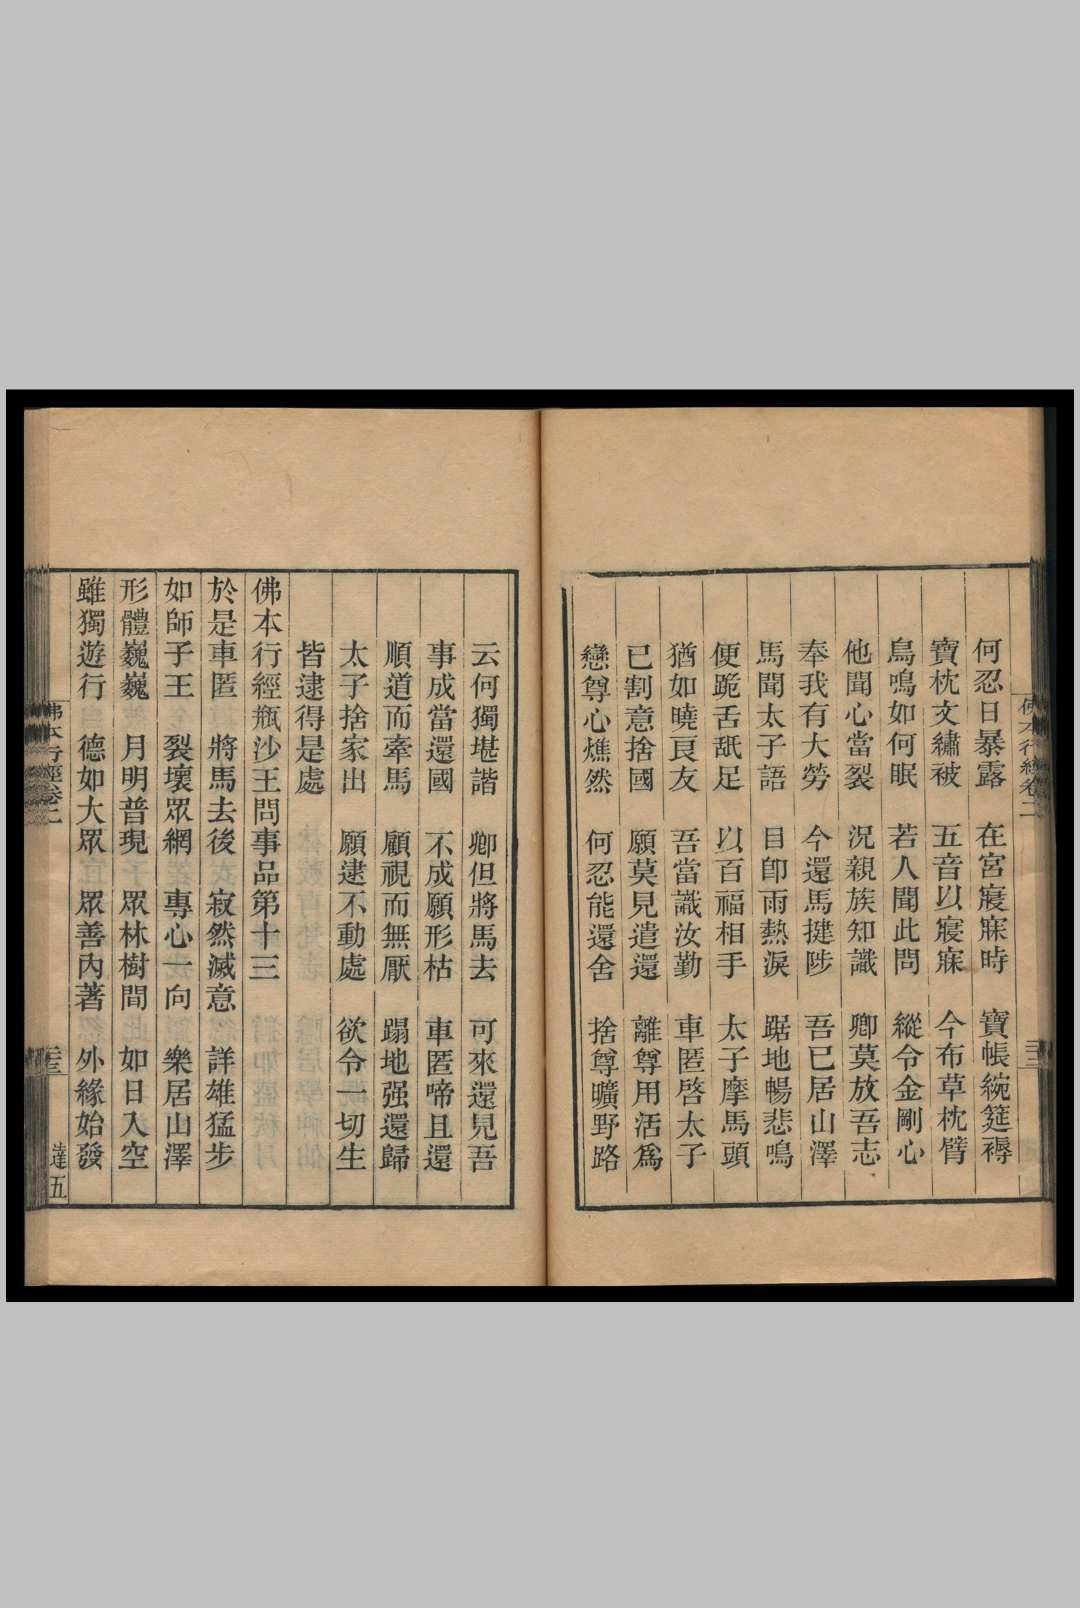 佛本行經卷二
何忍日暴露 在宮寢寐時 寶帳綩筵褥
寶枕文繡被 五音以寢寐 今布草枕臂
鳥鳴如何眠 若人聞此問 縱令金剛心
他聞心當裂 況親族知識 卿莫放吾志
奉我有大勞 今還馬揵陟 吾已居山澤
馬聞太子語 目卽雨熱淚 踞地暢悲鳴
便跪舌舐足 以百福相手 太子摩馬頭
猶如曉良友 吾當識汝勤 車匿啓太子
已割意捨國 願莫見遣還 離尊用活爲
戀尊心燋然 何忍能還舍 捨尊曠野路
云何獨堪諧 卿但將馬去 可來還見吾
事成當還國 不成願形枯 車匿啼且還
順道而牽馬 顧視而無厭 蹋地强還歸
太子捨家出 願逮不動處 欲令一切生
皆逮得是處
佛本行經瓶沙王問事品第十三
於是車匿 將馬去後 寂然滅意 詳雄猛步
如師子王 裂壞眾網 專心一向 樂居山澤
形體巍巍 月明普現 眾林樹間 如日入空
雖獨遊行 德如大眾 眾善內著 外緣始發
佛本行經卷二 達五